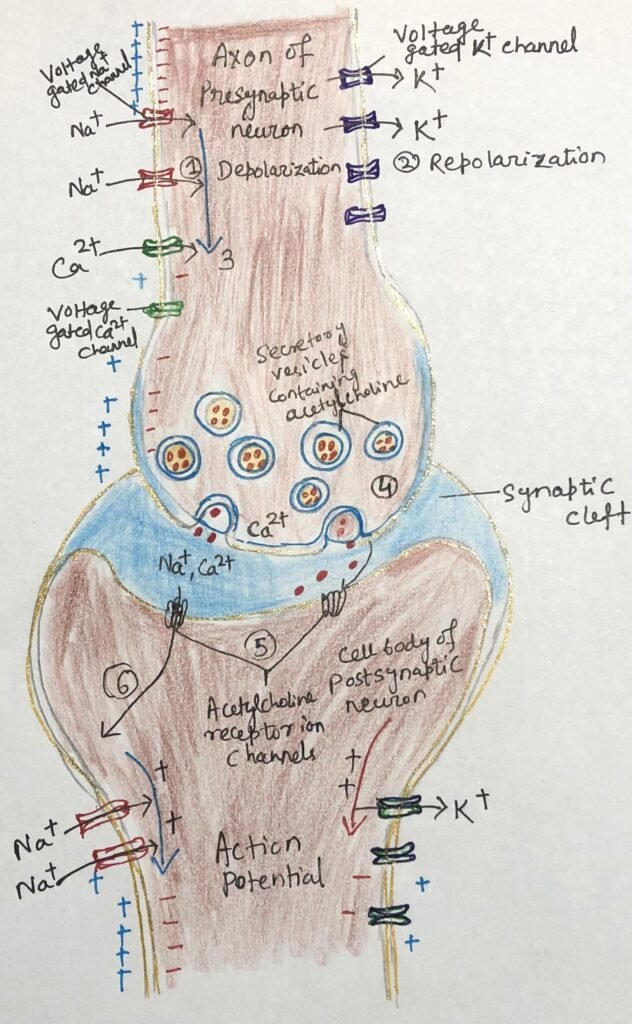 Axon of
Presynaptic
neuron
Voltage
gated Na+
channel
Voltage
gated K+ channel
K+
Na+
K+
① Depolarization
② Repolarization
Na+
Ca2+
3
Voltage
gated Ca2+
channel
Secretory
vesicles
containing
acetylcholine
④
Ca2+
Synaptic
cleft
Na+, Ca2+
⑤
⑥
Cell body of
Postsynaptic
neuron
Acetylcholine
receptor ion
channels
Na+
Na+
K+
Action
Potential